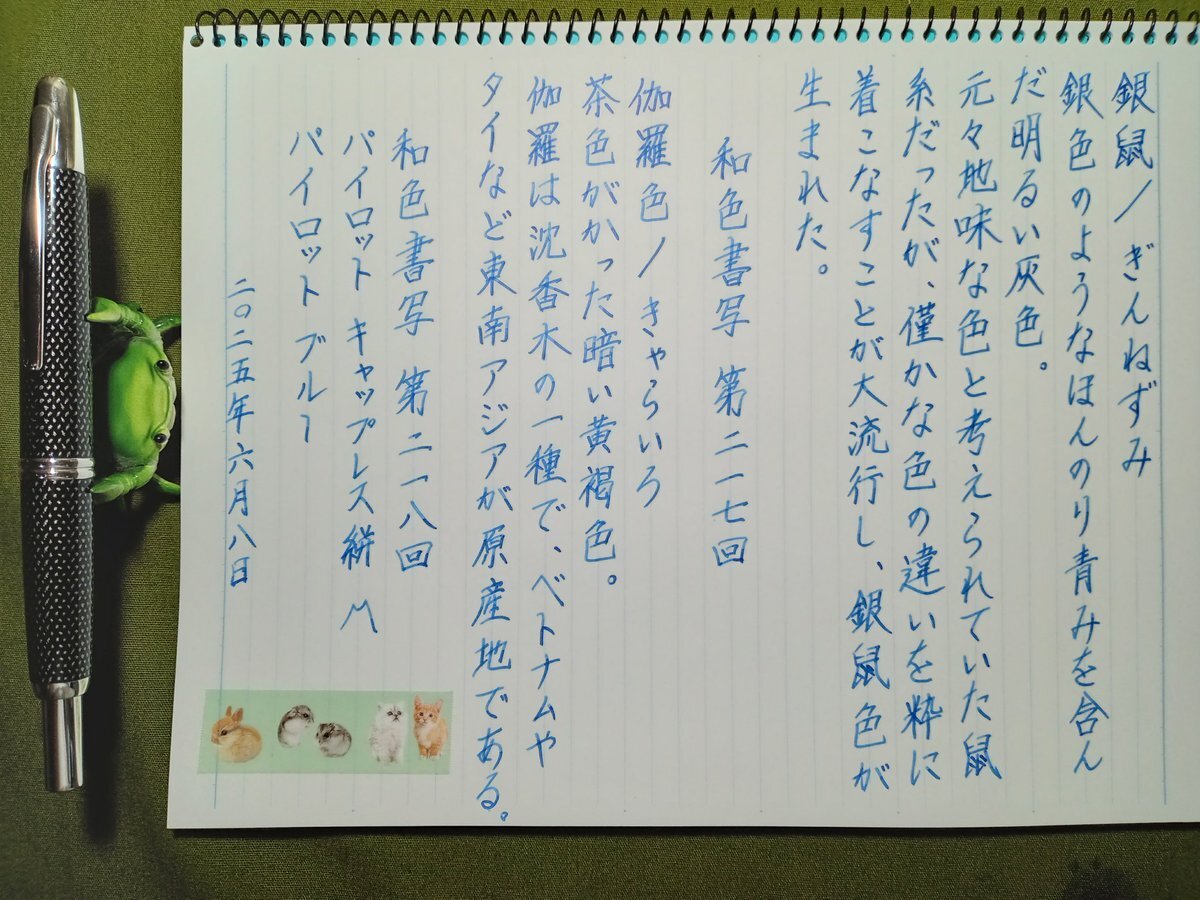 銀鼠／ぎんねずみ
銀色のようなほんのり青みを含ん
だ明るい灰色。
元々地味な色と考えられていた鼠
系だったが、僅かな色の違いを粋に
着こなすことが大流行し、銀鼠色が
生まれた。
和色書写 第二一七回
伽羅色／きゃらいろ
茶色がかった暗い黄褐色。
伽羅は沈香木の一種で、ベトナムや
タイなど東南アジアが原産地である。
和色書写 第二一八回
パイロット キャップレス 絣 M
パイロット ブルー
二〇二五年六月八日